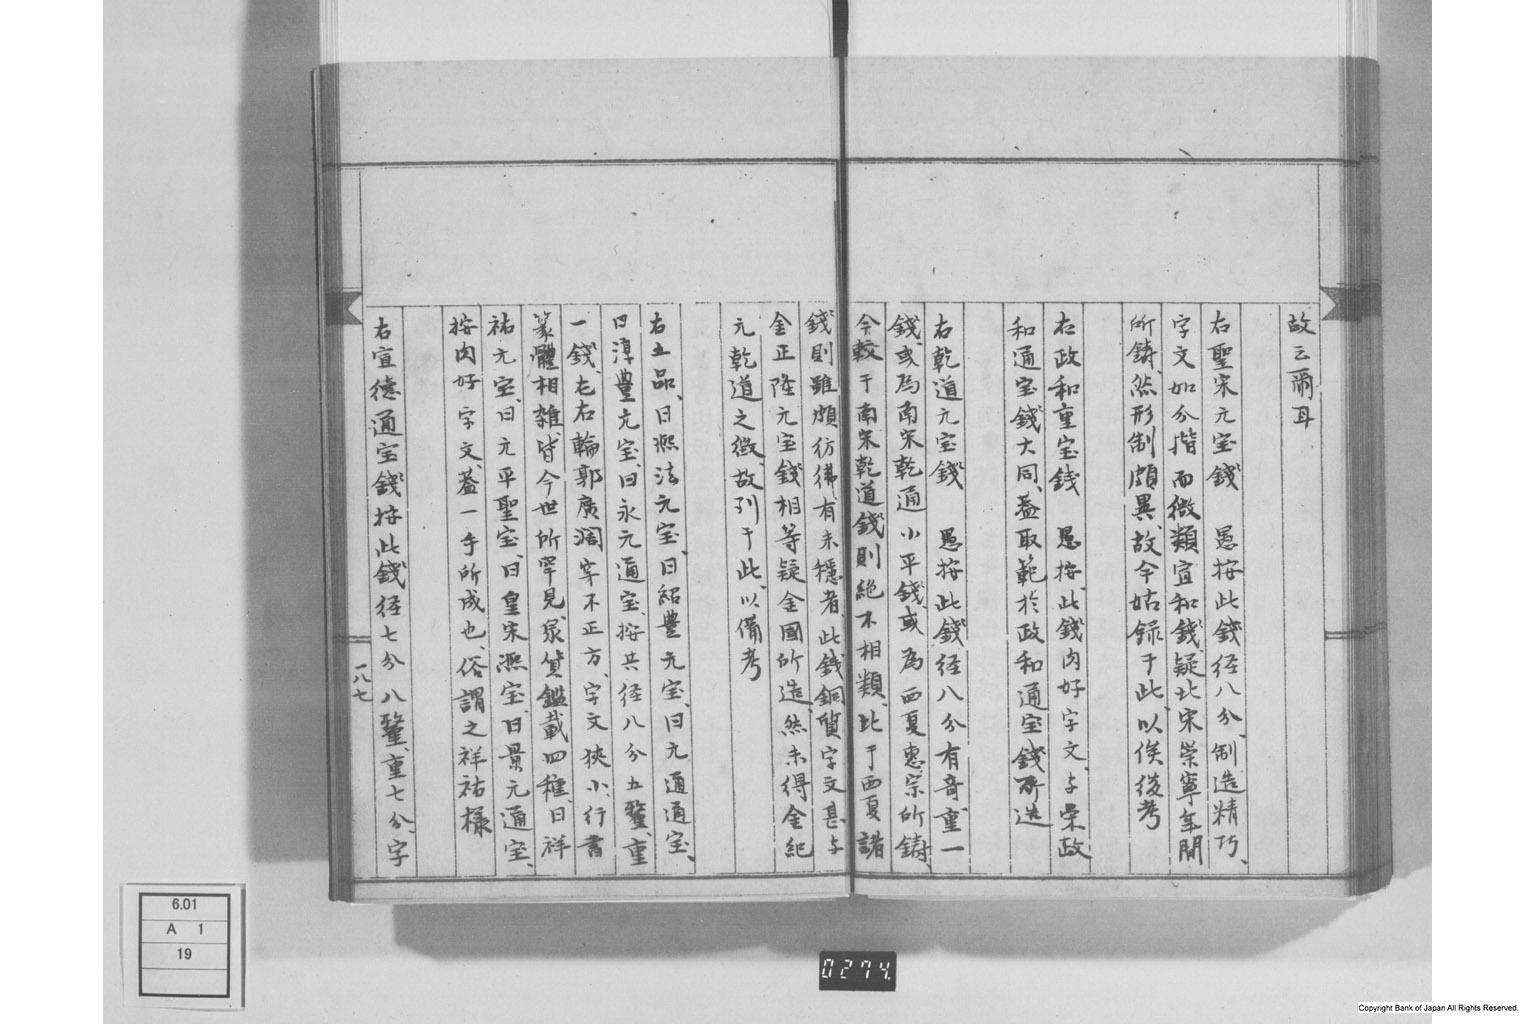 故云爾耳
右聖宋元宝錢　愚按此錢径八分、制造精巧、
字文如分揩而微類宣和錢、疑北宋崇寧年間
所鋳、然形制頗異、故今姑録于此、以俟後考
右政和重宝錢　愚按、此錢肉好字文、与宋政
和通宝錢大同、蓋取範於政和通宝錢所造
右乾道元宝錢　愚按此錢径八分有奇、重一
錢、或為南宋乾道小平錢、或為西夏惠宗所鋳、
今較于南宋乾道錢則絶不相類、比于西夏諸
錢則雖頗彷彿、有未穩者、此錢銅質字文甚与
金正隆元宝錢相等、疑金國所造、然未得金紀
元乾道之徴、故列于此、以備考
右五品、曰熈法元宝、曰紹豊元宝、曰元通通宝、
曰淳豊元宝、曰永元通宝、按其径八分五釐、重
一錢、左右輪郭廣濶穿不正方、字文狭小、行書
篆體相雜、皆今世所罕見、泉貨鑑載四種、曰祥
祐元宝、曰元平聖宝、曰皇宋熈宝、曰景元通宝、
按肉好字文、蓋一手所成也、俗謂之祥祐樣
右宣徳通宝錢按此錢径七分八釐、重七分、字
一八七
6.01
A 1
19
0274.
Copyright Bank of Japan All Rights Reserved.